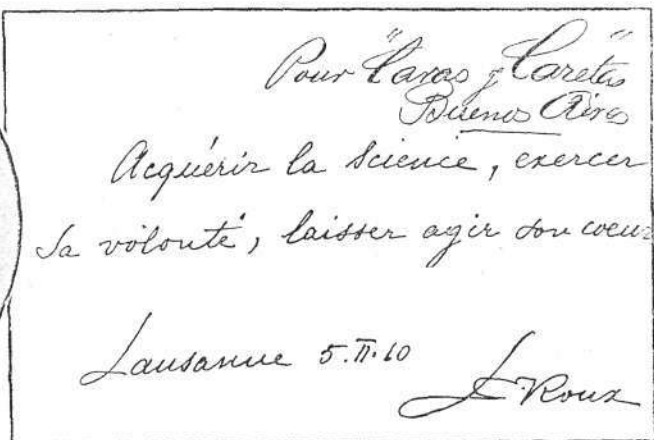 Pour "Caras y Caretas"
Buenos Aires
Acquérir la science, exercer
sa volonté, laisser agir son coeur
Lausanne 5.II.10
Roux